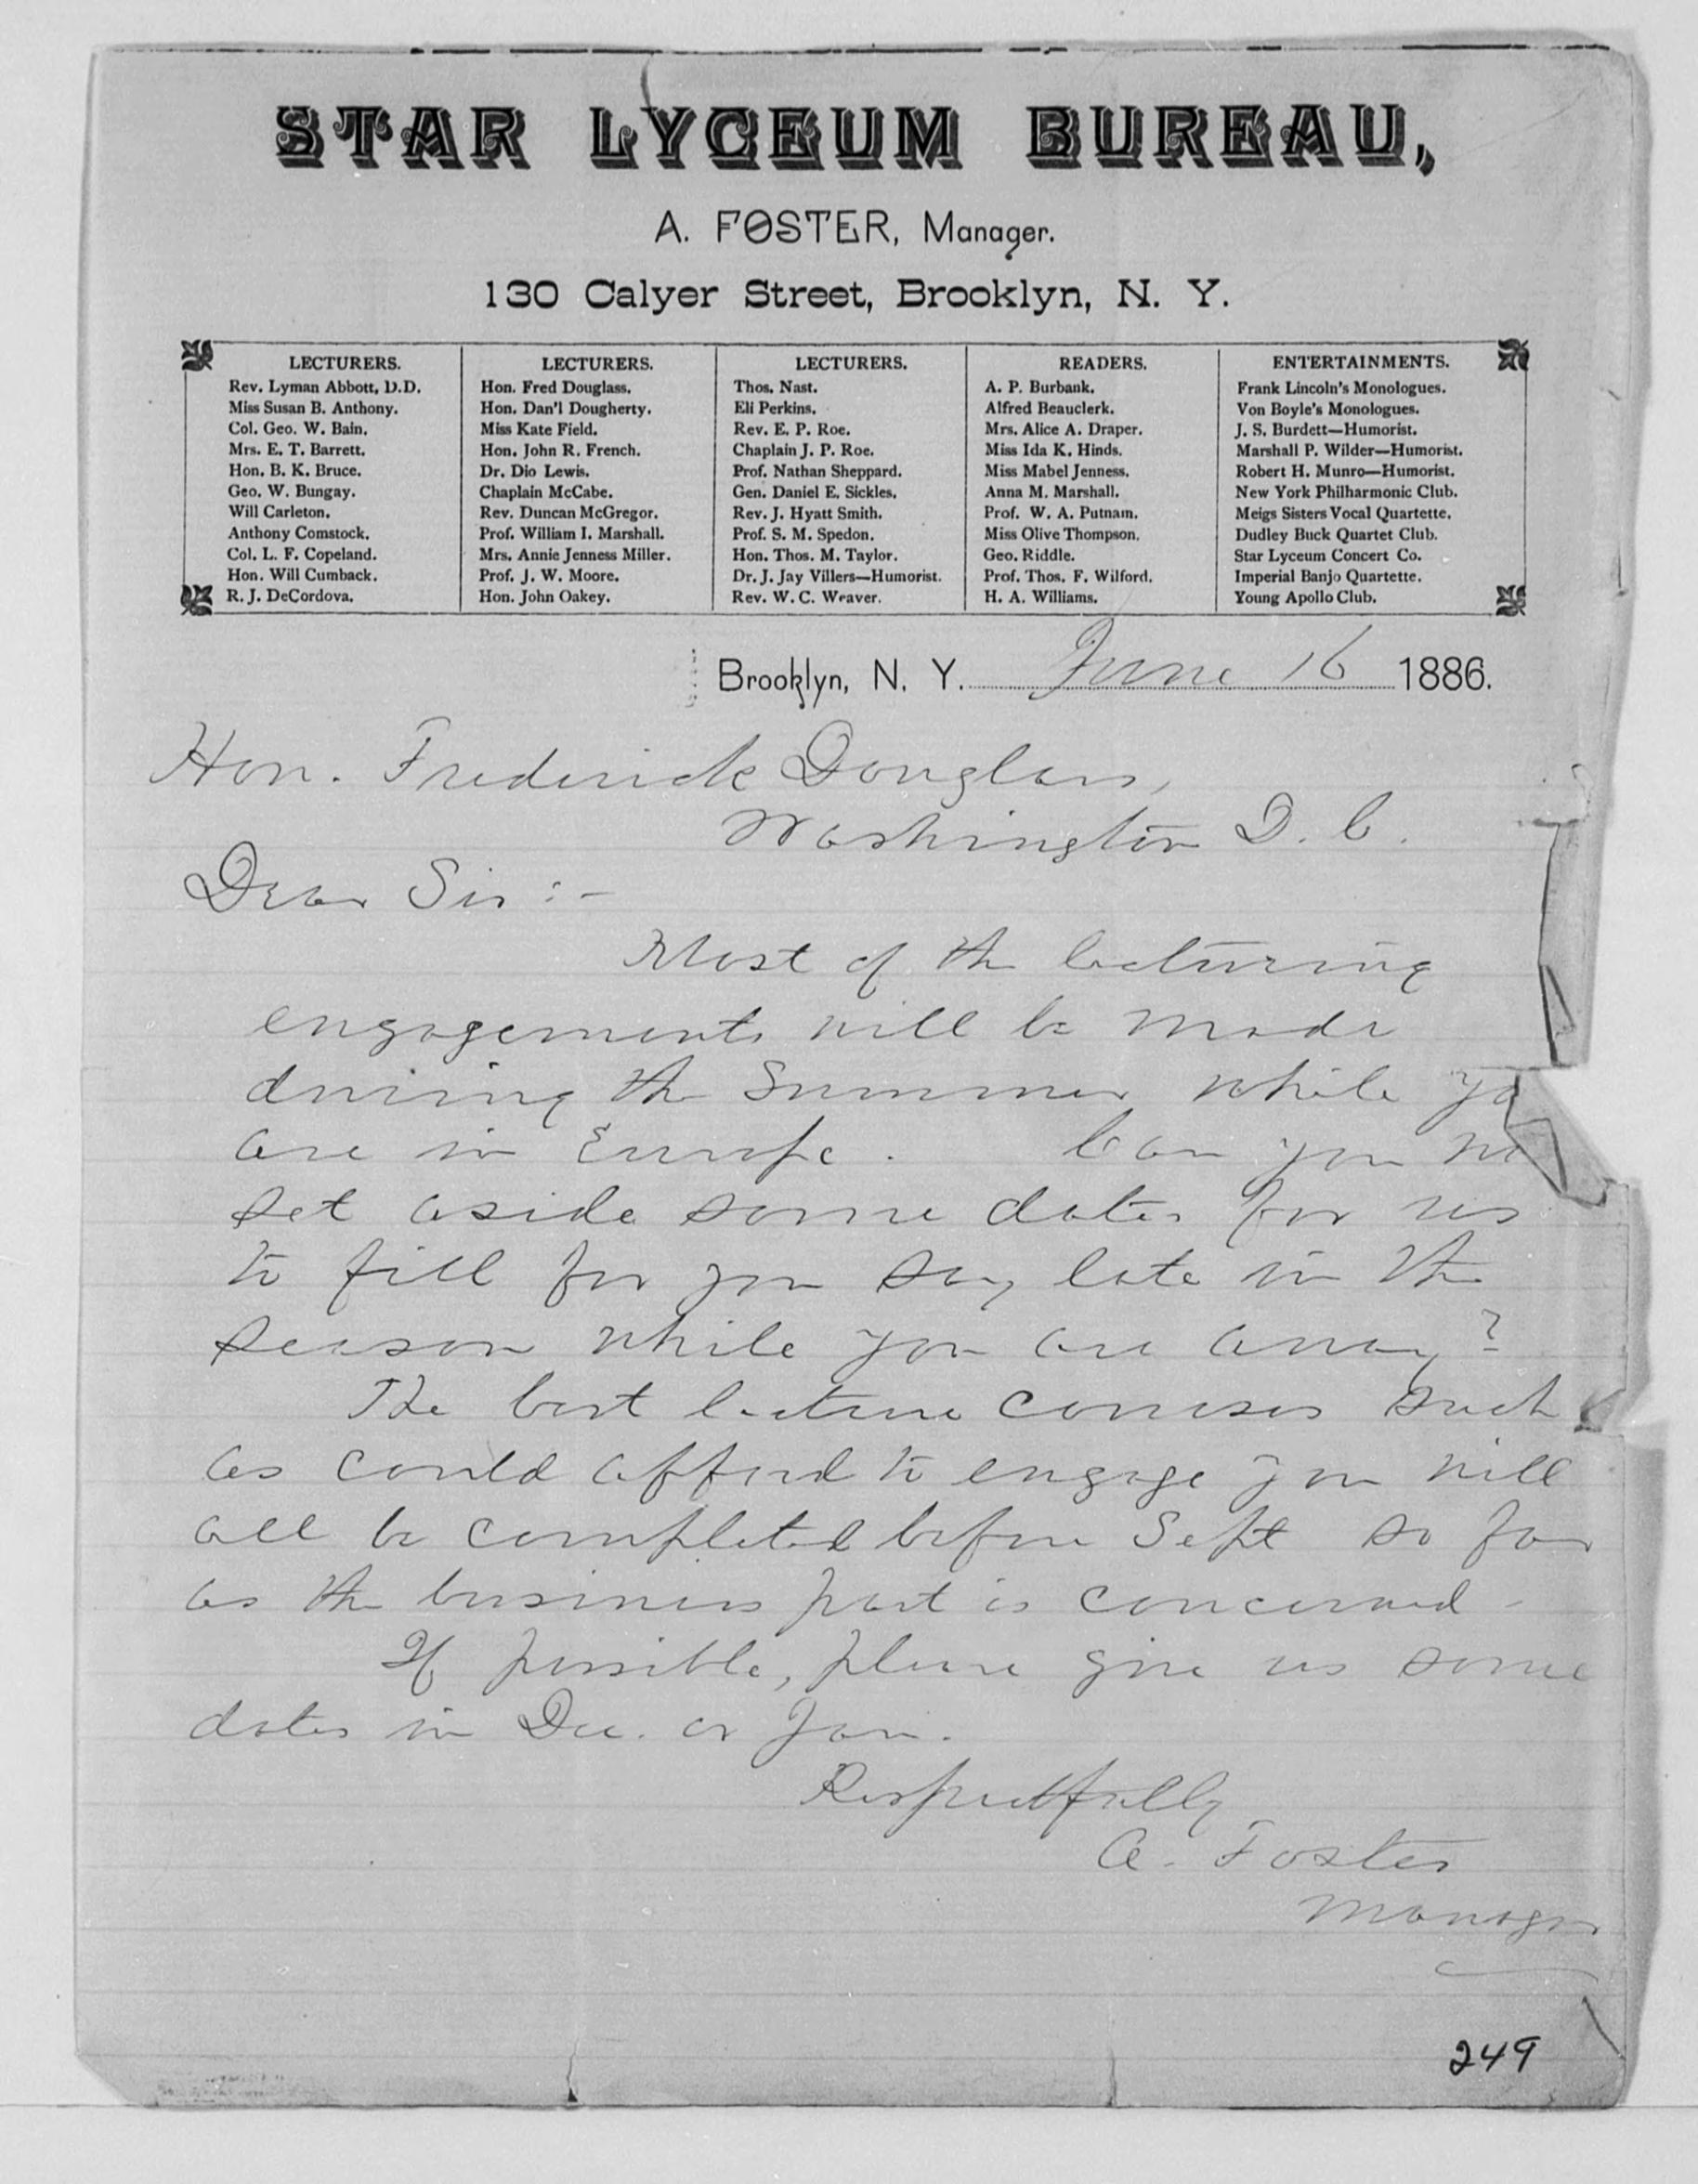 STAR LYCEUM BUREAU,
A. FOSTER, Manager.
130 Calyer Street, Brooklyn, N. Y.
LECTURERS.
Rev. Lyman Abbott, D.D.
Miss Susan B. Anthony.
Col. Geo. W. Bain.
Mrs. E. T. Barrett.
Hon. B. K. Bruce.
Geo. W. Bungay.
Will Carleton.
Anthony Comstock.
Col. L. F. Copeland.
Hon. Will Cumback.
R. J. DeCordova.
LECTURERS.
Hon. Fred Douglass.
Hon. Dan'l Dougherty.
Miss Kate Field.
Hon. John R. French.
Dr. Dio Lewis.
Chaplain McCabe.
Rev. Duncan McGregor.
Prof. William I. Marshall.
Mrs. Annie Jenness Miller.
Prof. J. W. Moore.
Hon. John Oakey.
LECTURERS.
Thos. Nast.
Eli Perkins.
Rev. E. P. Roe.
Chaplain J. P. Roe.
Prof. Nathan Sheppard.
Gen. Daniel E. Sickles.
Rev. J. Hyatt Smith.
Prof. S. M. Spedon.
Hon. Thos. M. Taylor.
Dr. J. Jay Villers—Humorist.
Rev. W. C. Weaver.
READERS.
A. P. Burbank.
Alfred Beauclerk.
Mrs. Alice A. Draper.
Miss Ida K. Hinds.
Miss Mabel Jenness.
Anna M. Marshall.
Prof. W. A. Putnam.
Miss Olive Thompson.
Geo. Riddle.
Prof. Thos. F. Wilford.
H. A. Williams.
ENTERTAINMENTS.
Frank Lincoln's Monologues.
Von Boyle's Monologues.
J. S. Burdett—Humorist.
Marshall P. Wilder—Humorist.
Robert H. Munro—Humorist.
New York Philharmonic Club.
Meigs Sisters Vocal Quartette.
Dudley Buck Quartet Club.
Star Lyceum Concert Co.
Imperial Banjo Quartette.
Young Apollo Club.
Brooklyn, N. Y. June 16 1886.
Hon. Frederick Douglass,
Washington D. C.
Dear Sir :-
Most of the lecturing
engagements will be made
during the Summer while yo
are in Europe. Can you no
set aside some dates for us
to fill for you say late in the
season while you are away?
The best lecture courses such
as could afford to engage you will
all be completed before Sept so far
as the business part is concerned -
If possible, please give us some
dates in Dec. or Jan.
Respectfully
A. Foster
Manager
249